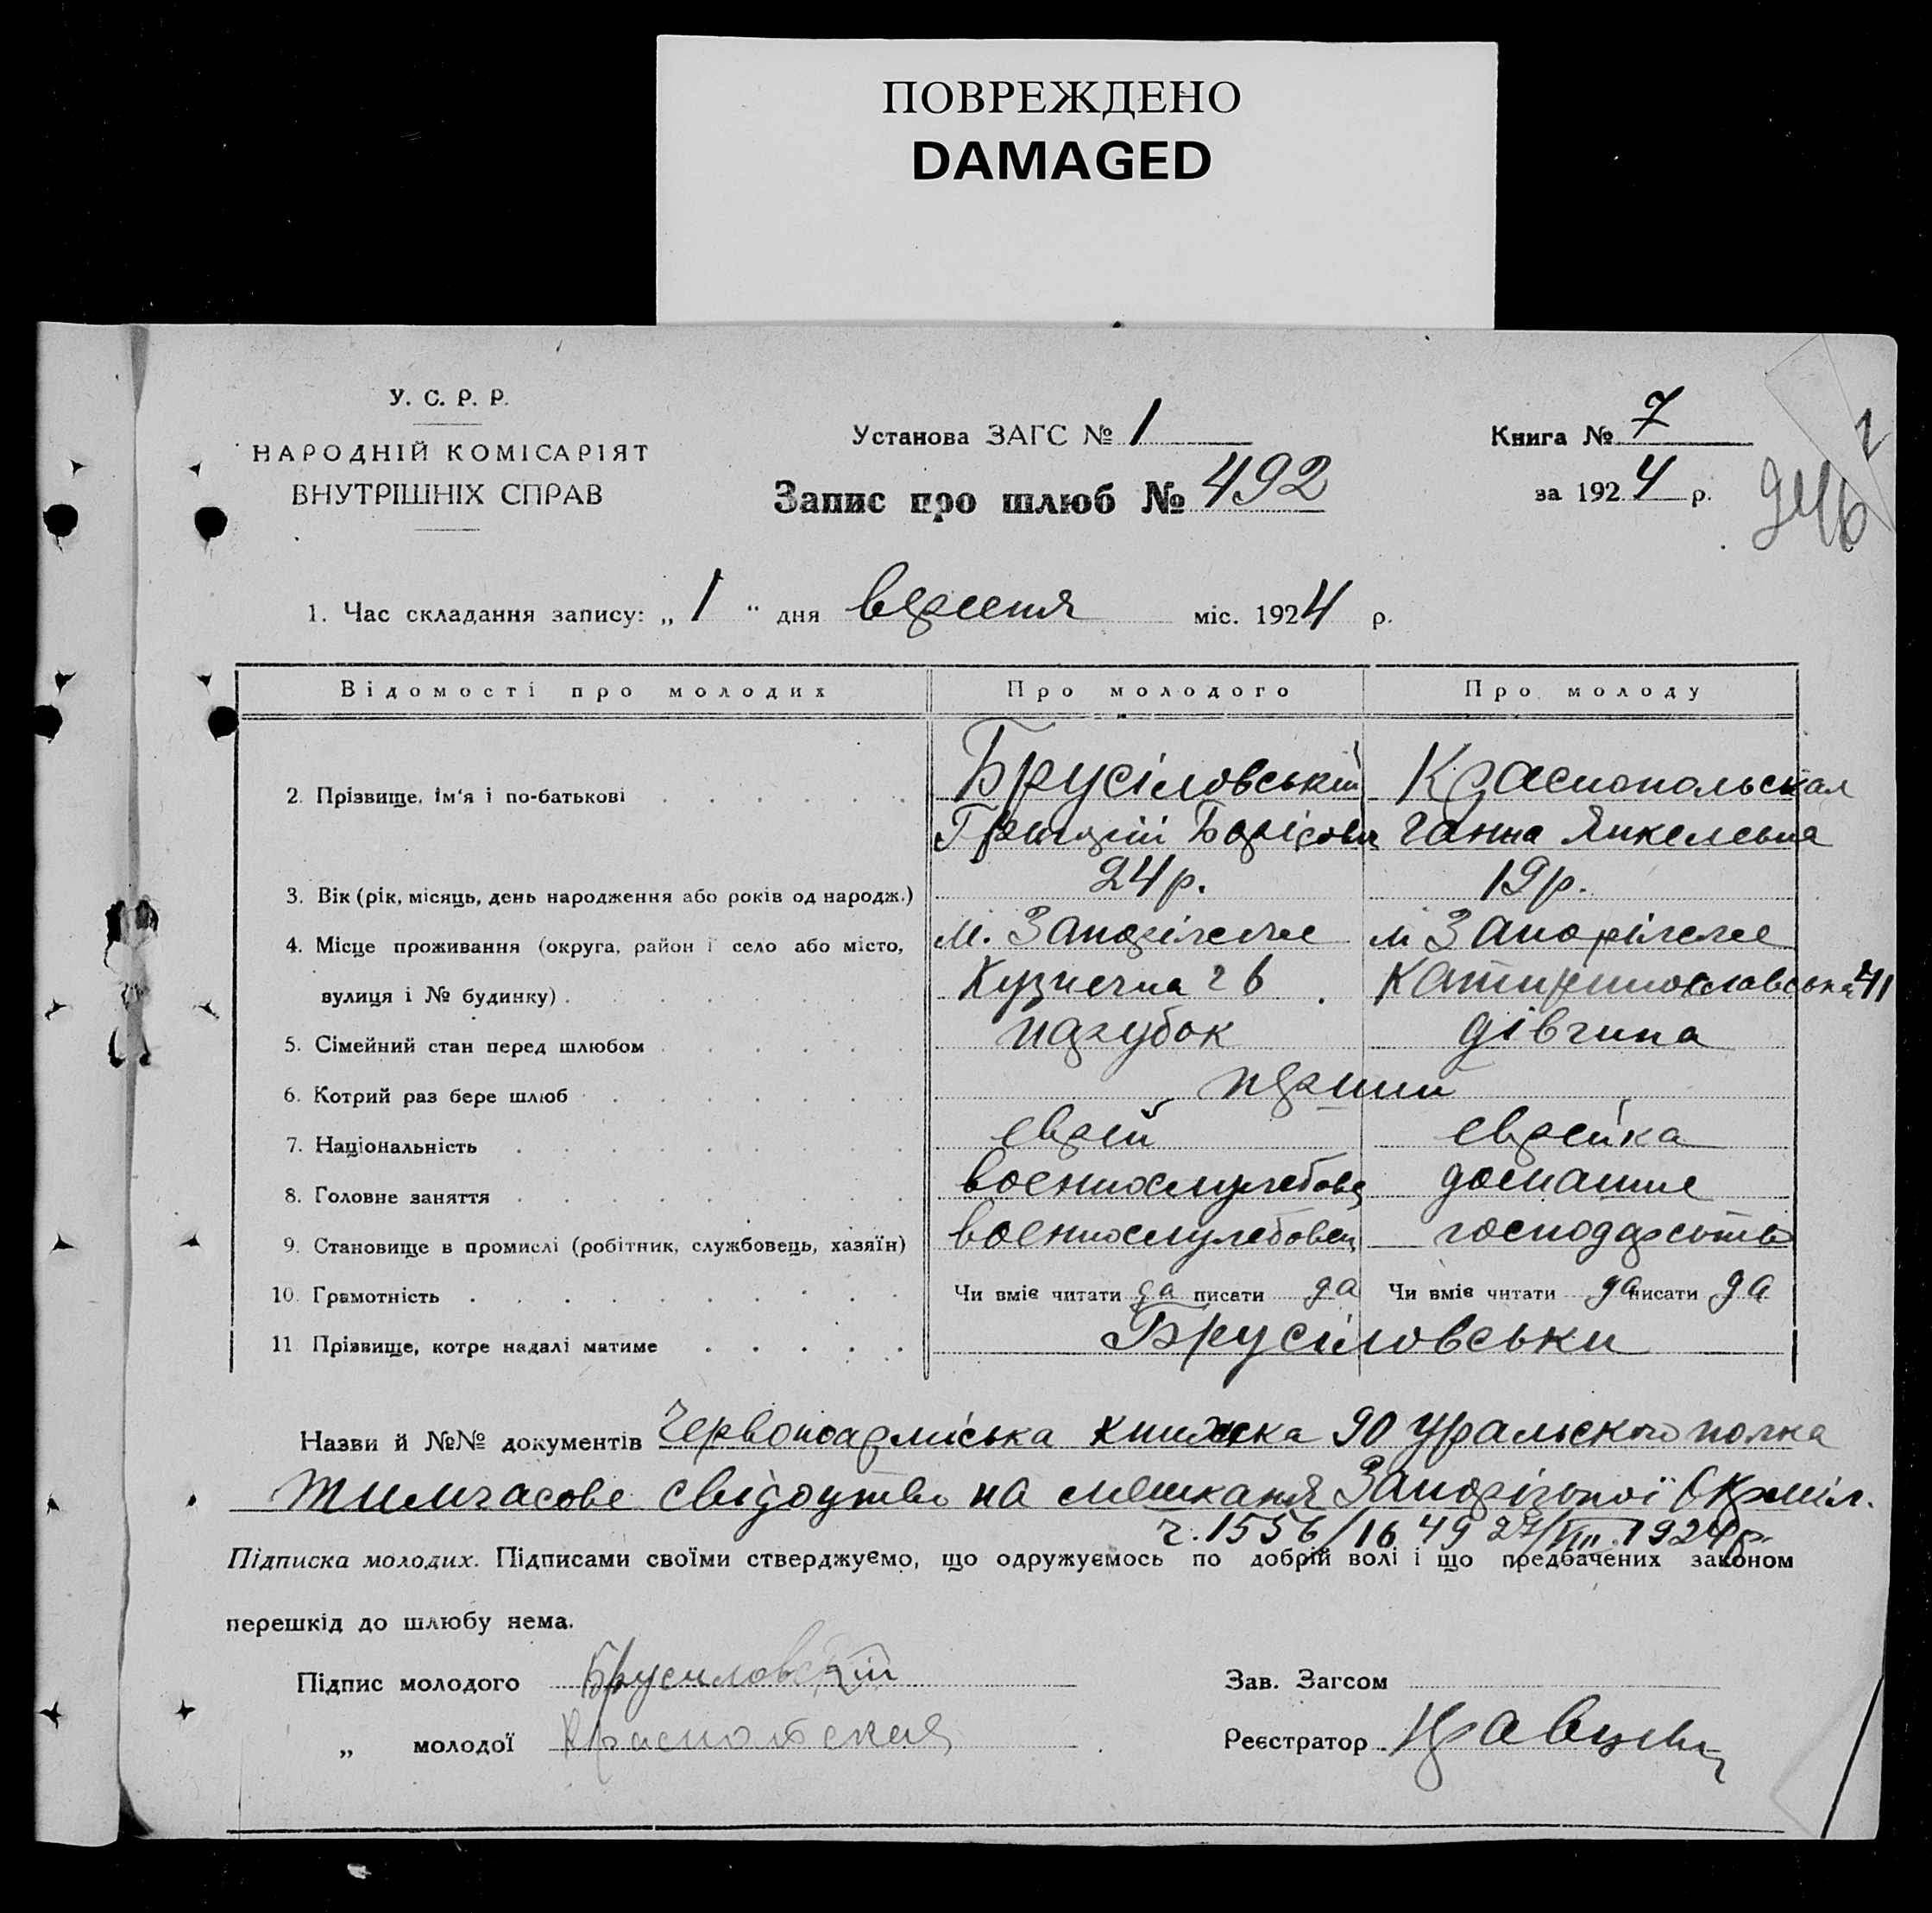 ПОВРЕЖДЕНО
DAMAGED
У. С. Р. Р.
НАРОДНІЙ КОМІСАРІЯТ
ВНУТРІШНІХ СПРАВ
Установа ЗАГС № 1
Запис про шлюб № 492
Книга № 7
за 1924 р.
1. Час складання запису: „ 1 “ дня вересня міс. 1924 р.
Відомості про молодих Про молодого Про молоду
2. Прізвище, ім'я і по-батькові Брусіловський Краснопольская
Борісович Ганна Янкелевна
3. Вік (рік, місяць, день народження або років од народж.) 24 р. 19 р.
4. Місце проживання (округа, район і село або місто, м. Запоріжжє м Запоріжжє
вулиця і № будинку) Кузнечна Катиринославська 41
5. Сімейний стан перед шлюбом парубок дівчина
6. Котрий раз бере шлюб перший
7. Національність єврей єврейка
8. Головне заняття военнослужбовец домашнє
9. Становище в промислі (робітник, службовець, хазяїн) военнослужбовец господарство
10. Грамотність Чи вміє читати да писати да Чи вміє читати да писати да
11. Прізвище, котре надалі матиме Брусіловськи
Назви й №№ документів Червоноармійська книжка 90 Уральского полка
Тимчасове свідоцтво на мешканя Запорізької Окрміл.
ч. 1556/1649 27/VIII 1924 р.
Підписка молодих. Підписами своїми стверджуємо, що одружуємось по добрій волі і що предбачених законом
перешкід до шлюбу нема.
Підпис молодого Брусиловский
Зав. Загсом
„ молодої
Реєстратор